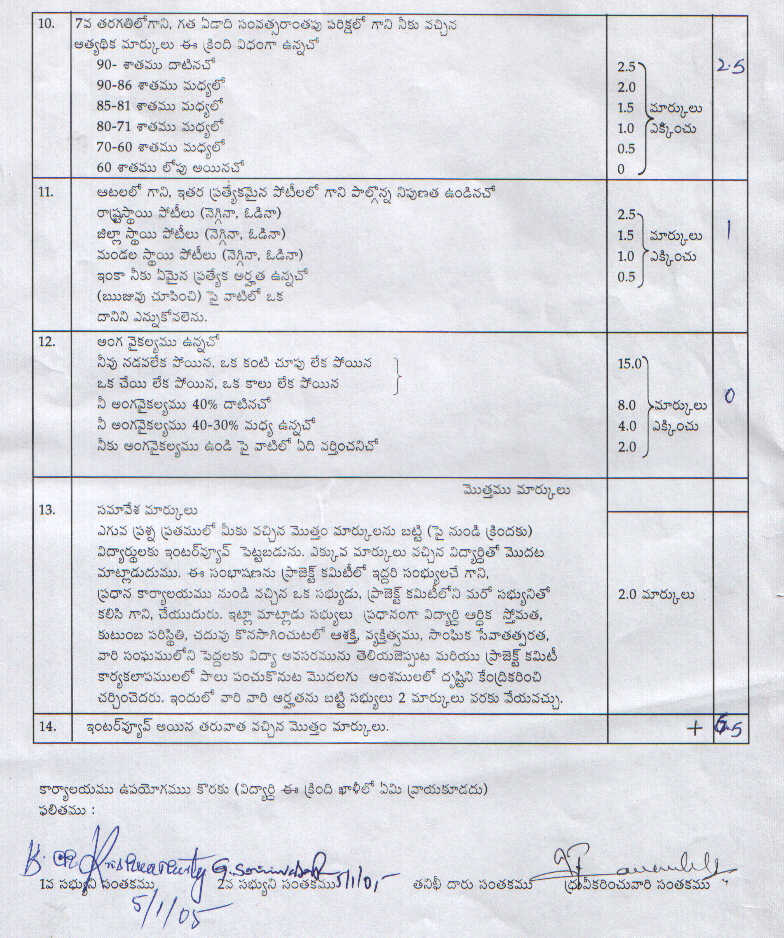 10. 7వ తరగతిలోగాని, గత ఏడాది సంవత్సరాంతపు పరిక్షలో గాని నీకు వచ్చిన
అత్యధిక మార్కులు ఈ క్రింది విధంగా ఉన్నచో
90- శాతము దాటినచో 2.5 2.5
90-86 శాతము మధ్యలో 2.0
85-81 శాతము మధ్యలో 1.5 మార్కులు
80-71 శాతము మధ్యలో 1.0 ఎక్కించు
70-60 శాతము మధ్యలో 0.5
60 శాతము లోపు అయినచో 0
11. ఆటలలో గాని, ఇతర ప్రత్యేకమైన పోటీలలో గాని పాల్గొన్న నిపుణత ఉండినచో
రాష్ట్రస్థాయి పోటీలు (నెగ్గినా, ఓడినా) 2.5
జిల్లా స్థాయి పోటీలు (నెగ్గినా, ఓడినా) 1.5 మార్కులు 1
మండల స్థాయి పోటీలు (నెగ్గినా, ఓడినా) 1.0 ఎక్కించు
ఇంకా నీకు ఏమైన ప్రత్యేక అర్హత ఉన్నచో 0.5
(ఋజువు చూపించి) పై వాటిలో ఒక
దానిని ఎన్నుకోవలెను.
12. అంగ వైకల్యము ఉన్నచో
నీవు నడవలేక పోయిన, ఒక కంటి చూపు లేక పోయిన 15.0
ఒక చేయి లేక పోయిన, ఒక కాలు లేక పోయిన
నీ అంగవైకల్యము 40% దాటినచో 8.0 మార్కులు 0
నీ అంగవైకల్యము 40-30% మధ్య ఉన్నచో 4.0 ఎక్కించు
నీకు అంగవైకల్యము ఉండి పై వాటిలో ఏది వర్తించనిచో 2.0
మొత్తము మార్కులు
13. సమావేశ మార్కులు
ఎగువ ప్రశ్న ప్రతములో మీకు వచ్చిన మొత్తం మార్కులను బట్టి (పై నుండి క్రిందకు)
విద్యార్థులకు ఇంటర్వ్యూవ్ పెట్టబడును. ఎక్కువ మార్కులు వచ్చిన విద్యార్థితో మొదట
మాట్లాడుదుము. ఈ సంభాషణను ప్రాజెక్ట్ కమిటీలో ఇద్దరి సంభ్యులచే గాని,
ప్రధాన కార్యాలయము నుండి వచ్చిన ఒక సభ్యుడు, ప్రాజెక్ట్ కమిటీలోని మరో సభ్యునితో 2.0 మార్కులు
కలిసి గాని, చేయుదురు. ఇట్లా మాట్లాడు సభ్యులు ప్రధానంగా విద్యార్థి ఆర్ధిక స్తోమత,
కుటుంబ పరిస్థితి, చదువు కొనసాగించుటలో ఆశక్తి, వ్యక్తిత్వము, సాంఘిక సేవాతత్పరత,
వారి సంఘములోని పెద్దలకు విద్యా అవసరమును తెలియజెప్పుట మరియు ప్రాజెక్ట్ కమిటీ
కార్యకలాపములలో పాలు పంచుకొనుట మొదలగు అంశములలో దృష్టిని కేంద్రికరించి
చర్చించెదరు. ఇందులో వారి వారి అర్హతను బట్టి సభ్యులు 2 మార్కులు వరకు వేయవచ్చు.
14. ఇంటర్వ్యూవ్ అయిన తరువాత వచ్చిన మొత్తం మార్కులు. + 6.5
కార్యాలయము ఉపయోగముు కొరకు (విద్యార్థి ఈ క్రింది ఖాళీలో ఏమి వ్రాయకూడదు)
ఫలితము :
1వ సభ్యుని సంతకము 2వ సభ్యుని సంతకము 5/1/05 తనిఖీ దారు సంతకము ధ్రువీకరించువారి సంతకము
5/1/05